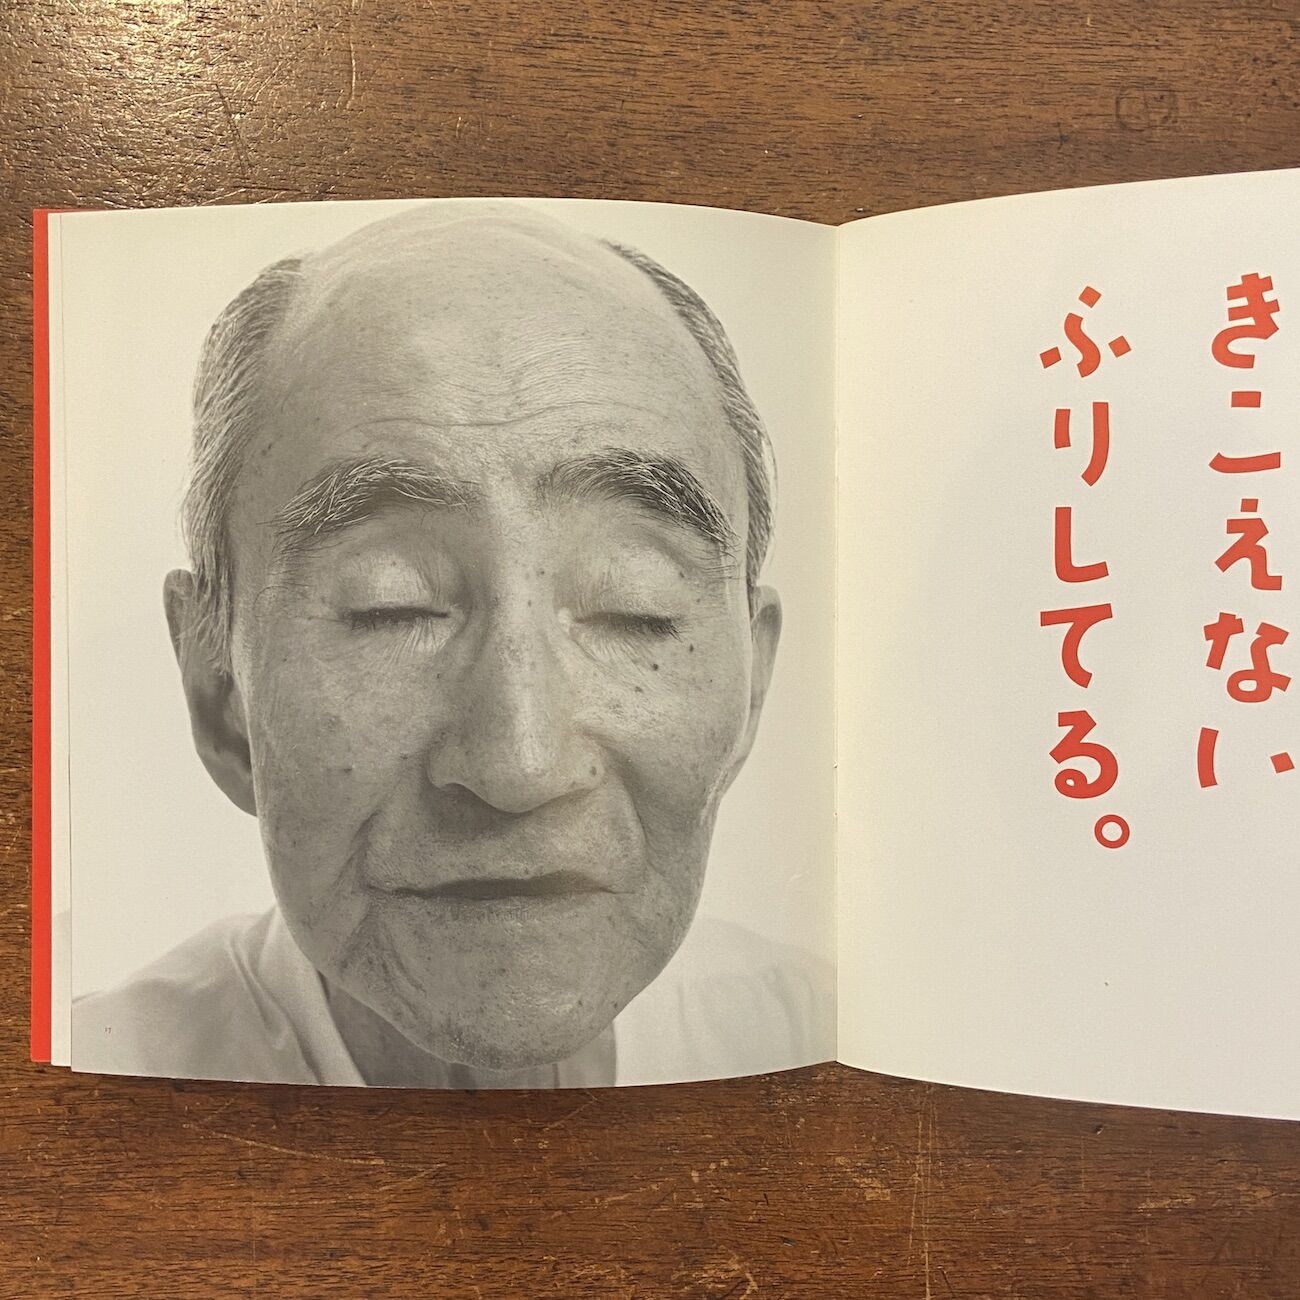 きこえない
ふりしてる。
17